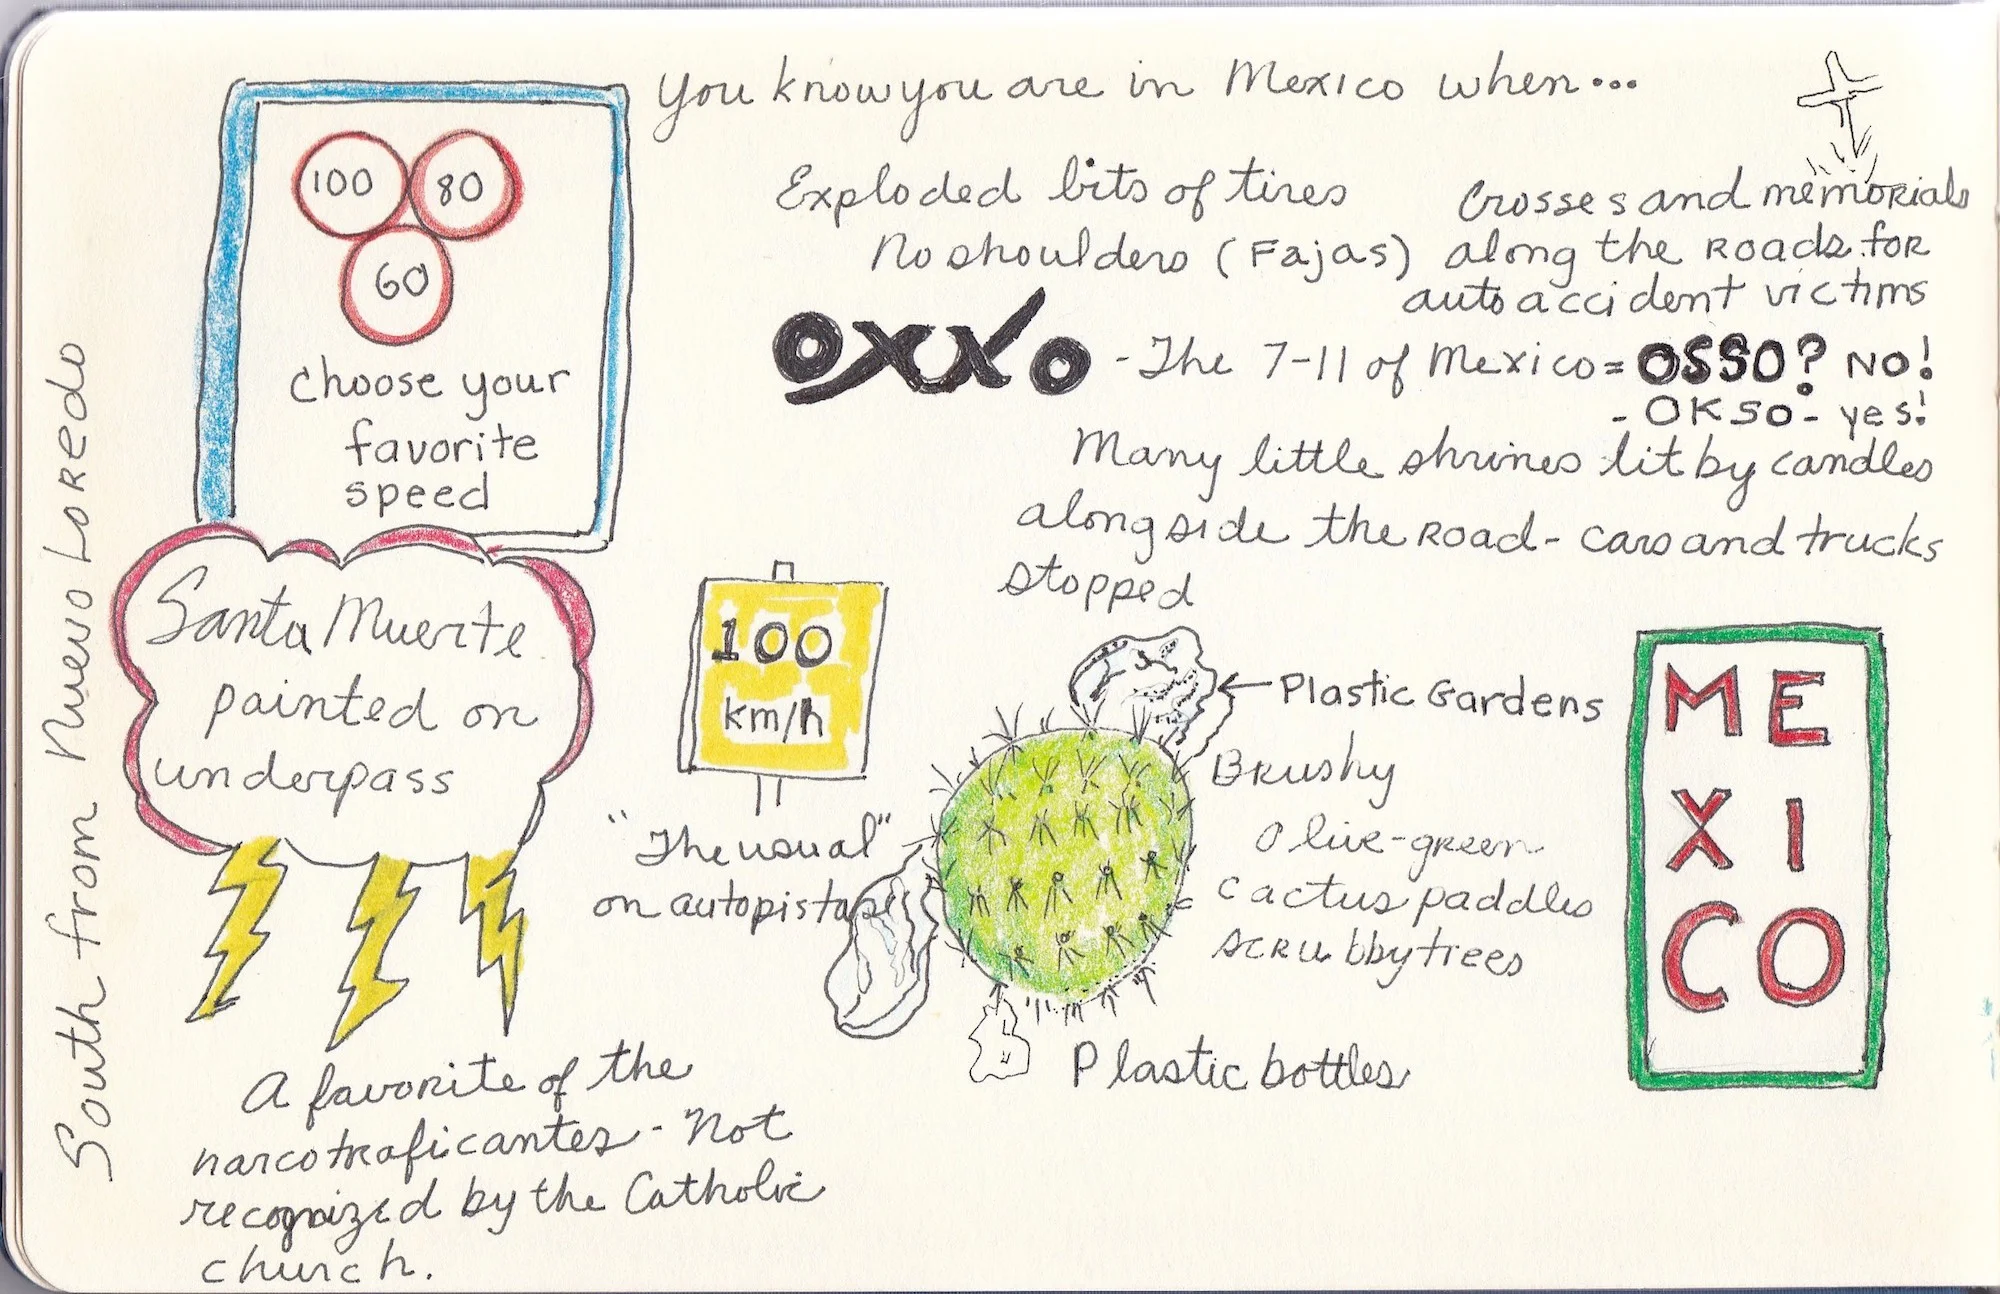 You know you are in Mexico when...
100
80
60
choose your
favorite
speed
Exploded bits of tires
No shoulders (Fajas)
Crosses and memorials
along the roads for
auto accident victims
OXXO - The 7-11 of Mexico = OSSO? NO!
- OKSO - yes!
Many little shrines lit by candles
alongside the road - cars and trucks
stopped
South from Nuevo Loredo
Santa Muerte
painted on
underpass
A favorite of the
narcotraficantes - Not
recognized by the Catholic
church.
100
km/h
"The usual"
on autopistas
Plastic Gardens
Brushy
Olive-green
cactus paddles
scrubby trees
Plastic bottles
ME
XI
CO